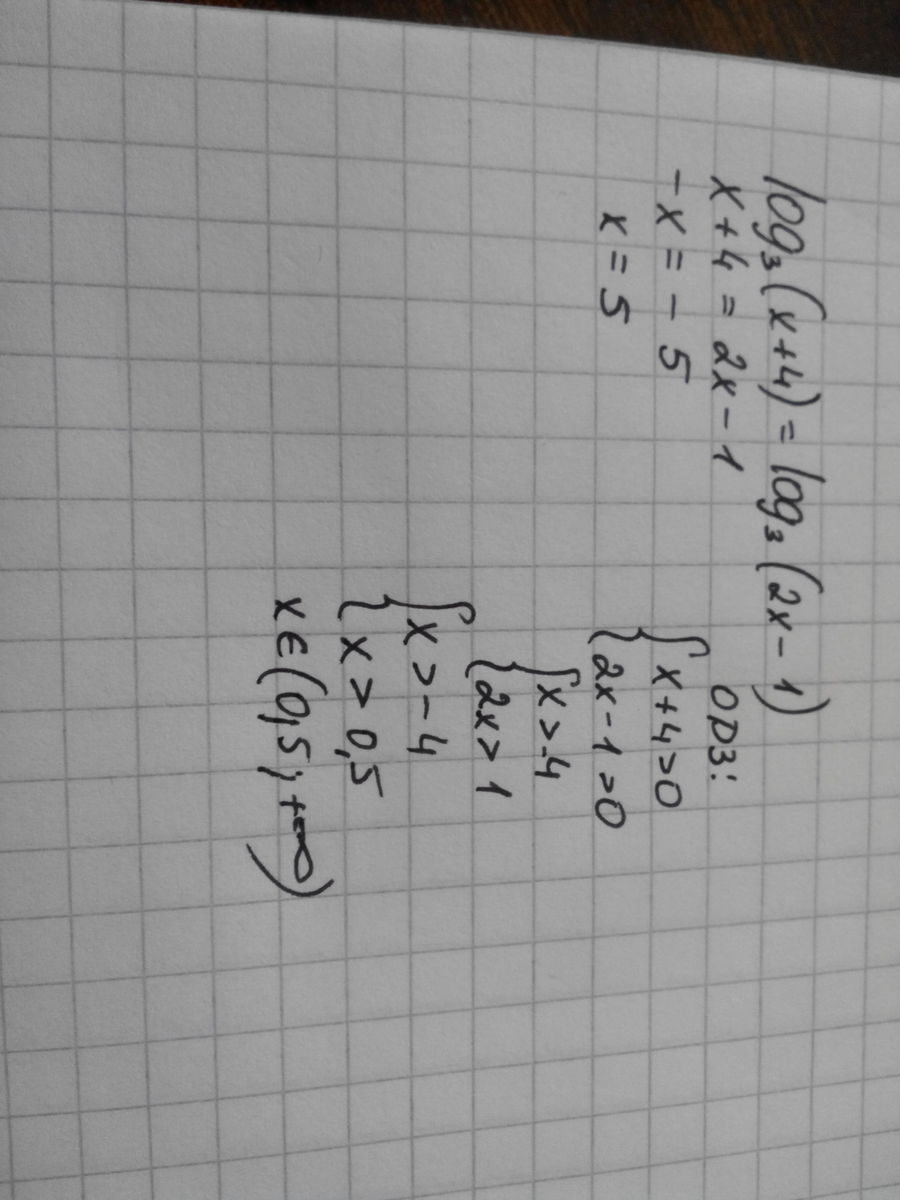 log₃(x+4) = log₃(2x-1)
x+4 = 2x-1
-x = -5
x = 5
ОДЗ:
{x+4>0
{2x-1>0
{x>-4
{2x>1
{x>-4
{x>0,5
x∈(0,5;+∞)